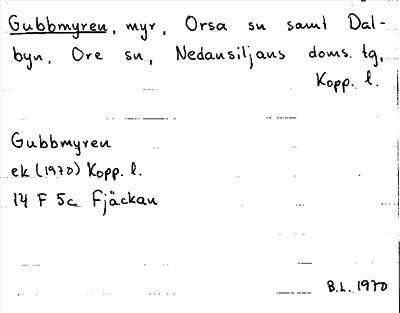 Gubbmyren, myr, Orsa sn samt Dal-
byn, Ore sn, Nedansiljans doms. tg,
Kopp. l.
Gubbmyren
ek (1970) Kopp. l.
14 F 5c Fjäckan
B.L. 1970